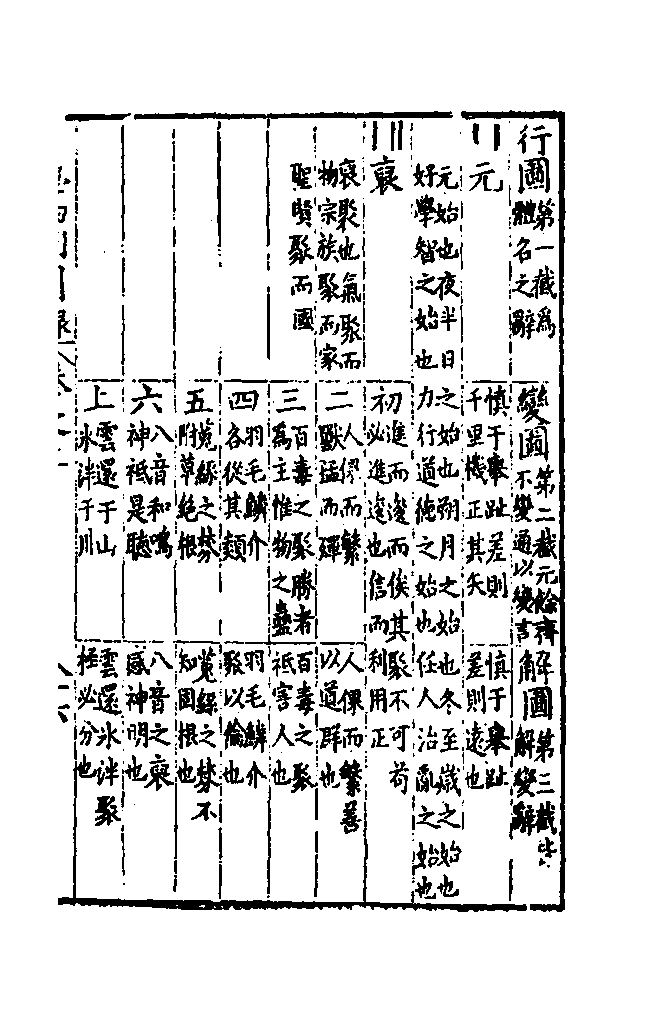 行圖
第一截爲
體名之辭
變圖
第二截元餘齊
不變通以變言
解圖
第三截皆
解變辭
元
慎于舉趾差則
千里機正其矢
慎于舉趾
差則遠也
元始也夜半日之始也朔月之始也冬至歲之始也
好學智之始也力行道德之始也任人治亂之始也
裒
初
進而逡而俟其
必進逡也信而
聚不可苟
利用正
裒聚也氣聚而
物宗族聚而家
二
人倮而繁
獸猛而殫
人倮而繁善
以道群也
聖賢聚而國
三
百毒之聚勝者
爲主惟物之蠱
百毒之聚
祇害人也
四
羽毛鱗介
各從其類
羽毛鱗介
聚以倫也
五
菟絲之棼
附草絕根
菟絲之棼不
知固根也
六
八音和鳴
神祇是聽
八音之裒
感神明也
上
雲還于山
冰泮于川
雲還冰泮聚
極必分也